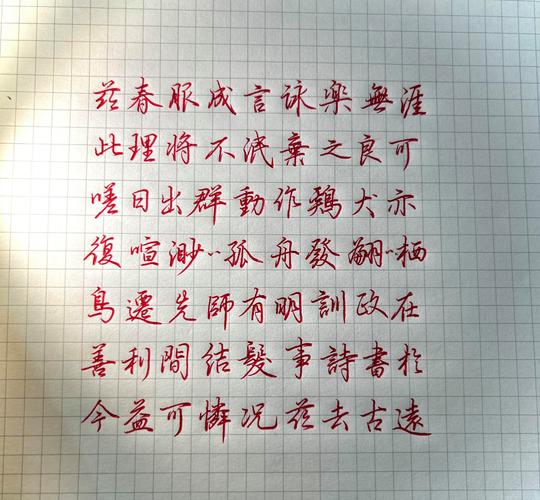 茲春服成言詠樂無涯
此理将不泯棄之良可
嗟日出群動作鷄犬亦
復喧渺〻孤舟發翩〻栖
鳥遷先師有明訓政在
善利間結髮事詩書於
今益可憐况茲去古遠